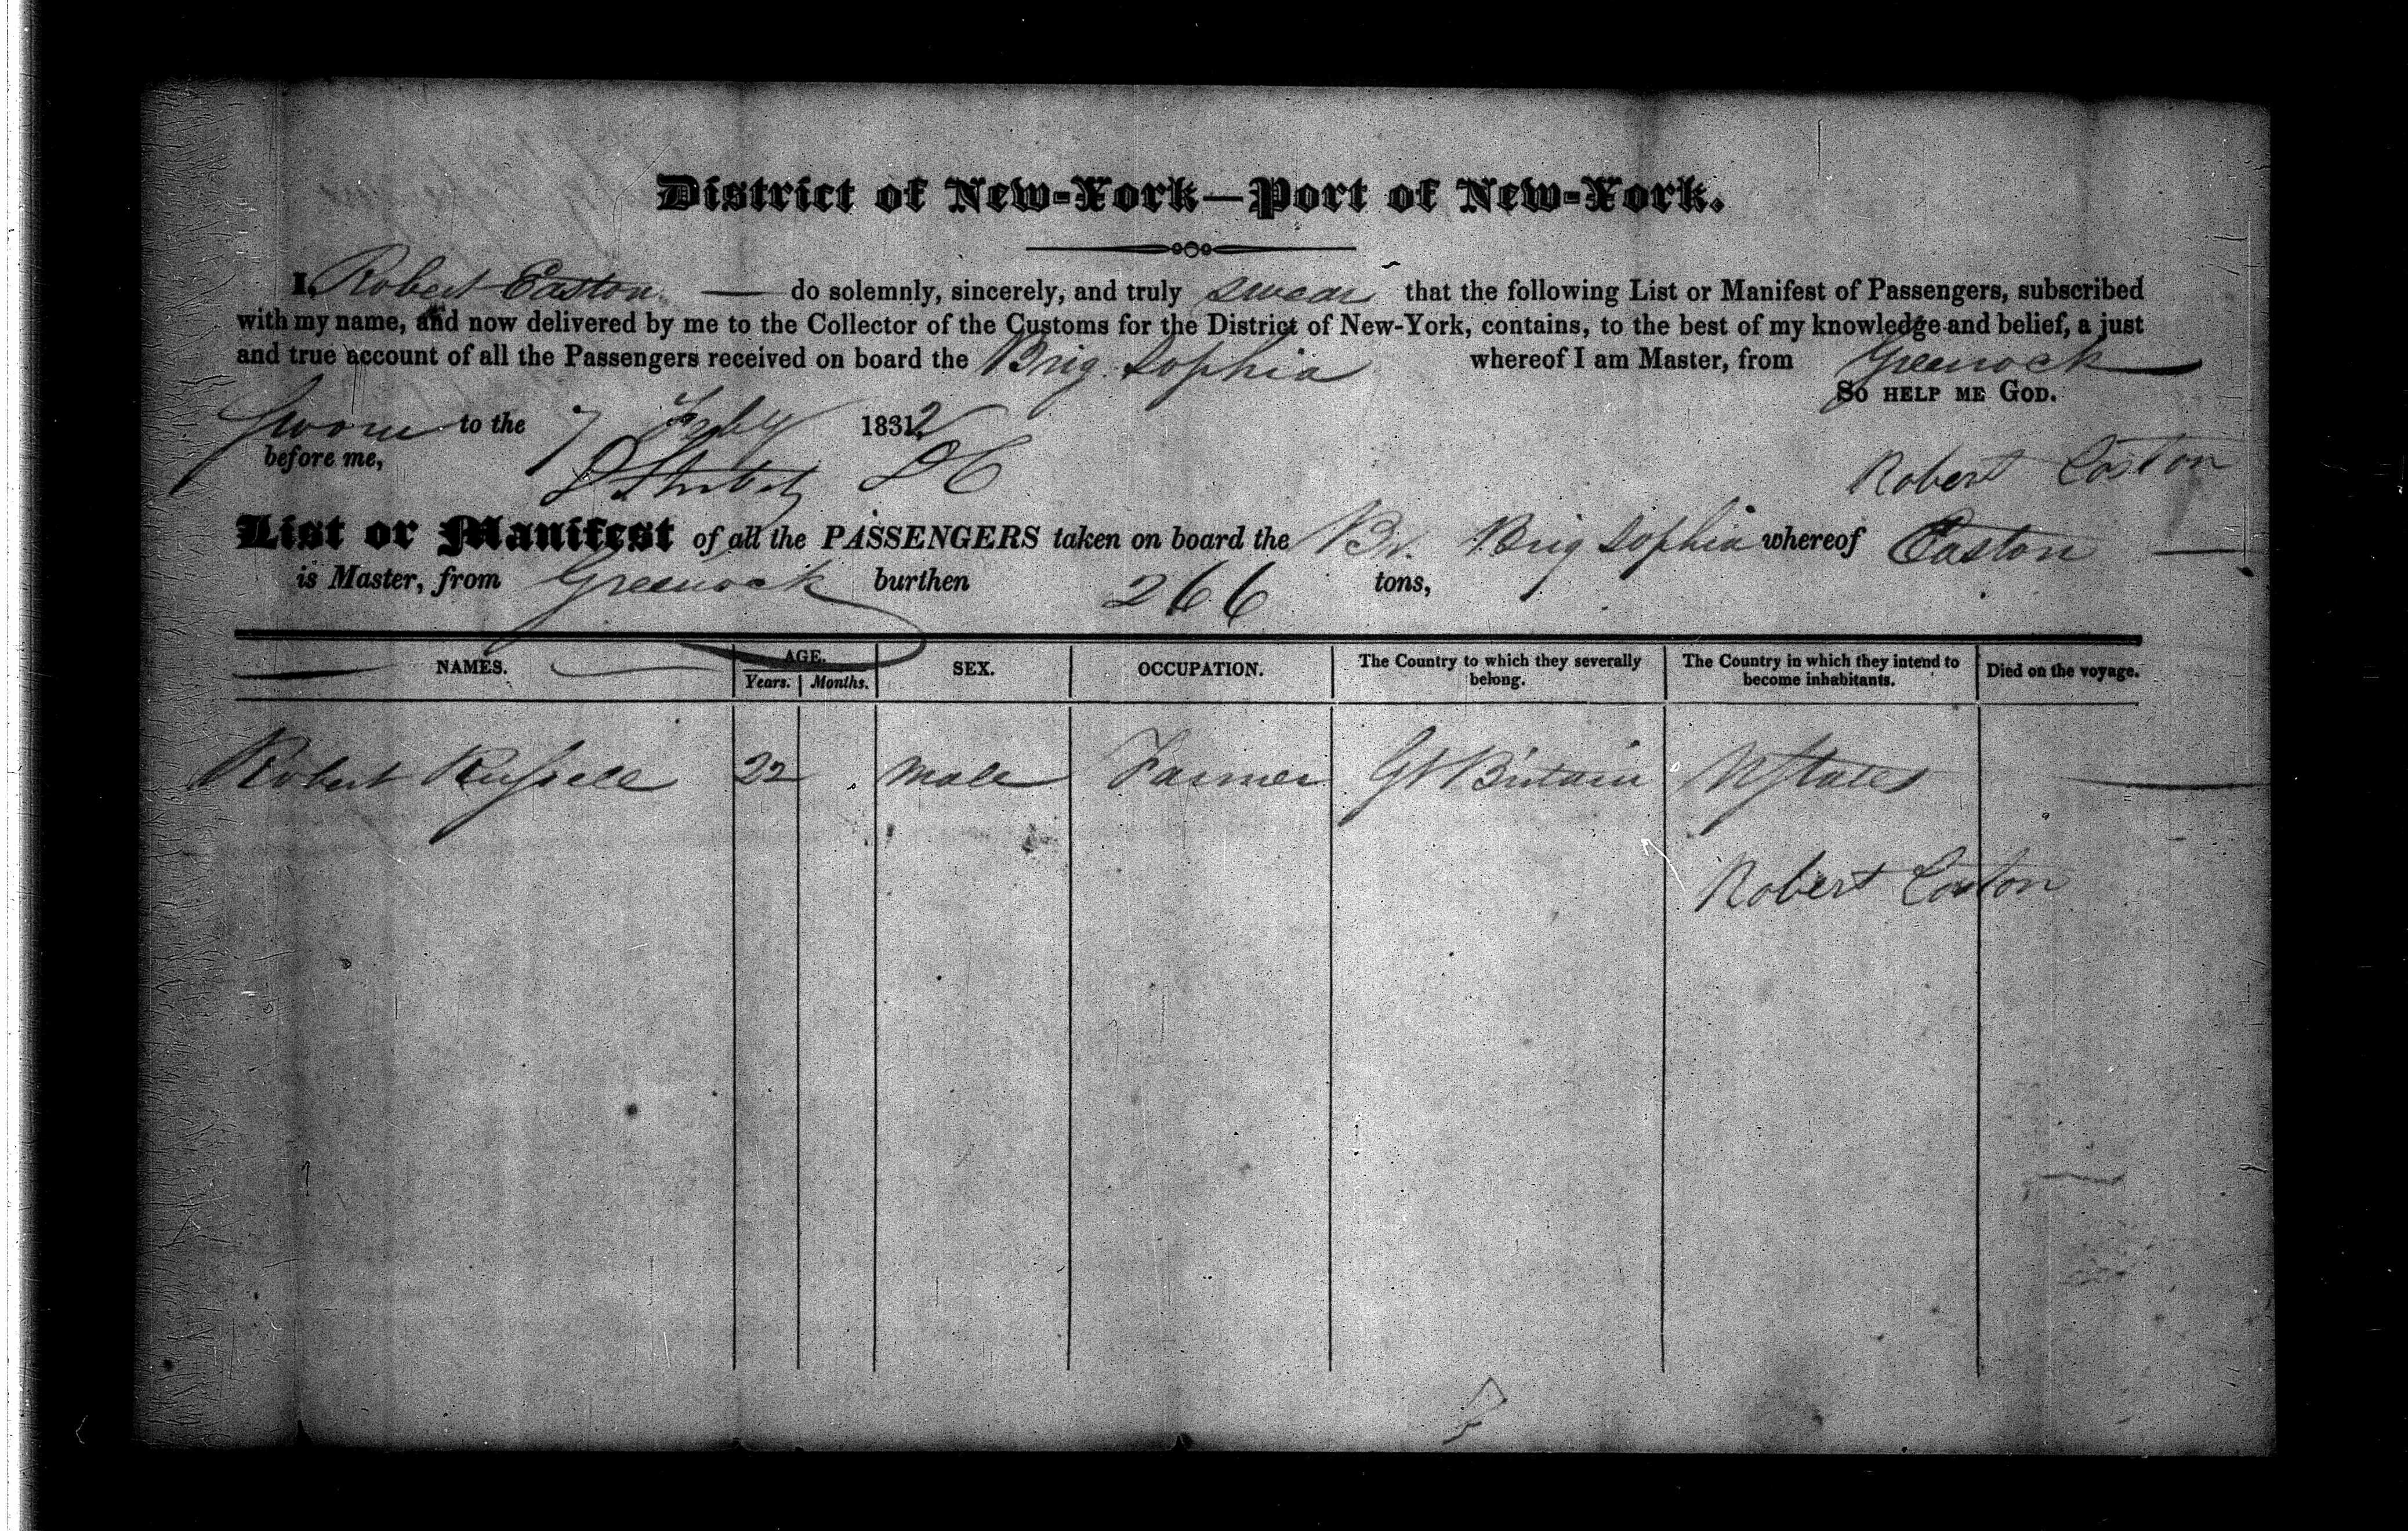 District of New-York—Port of New-York.
I, Robert Easton — do solemnly, sincerely, and truly swear that the following List or Manifest of Passengers, subscribed
with my name, and now delivered by me to the Collector of the Customs for the District of New-York, contains, to the best of my knowledge and belief, a just
and true account of all the Passengers received on board the Brig Sophia whereof I am Master, from Greenock
So help me God.
Sworn to the 7 Feby 1832
before me, DC
Robert Easton
List or Manifest of all the PASSENGERS taken on board the Br. Brig Sophia whereof Easton —
is Master, from Greenock burthen 266 tons,
NAMES. AGE. Years. Months. SEX. OCCUPATION. The Country to which they severally belong. The Country in which they intend to become inhabitants. Died on the voyage.
Robert Russell 22 Male Farmer Gt Britain U States
Robert Easton